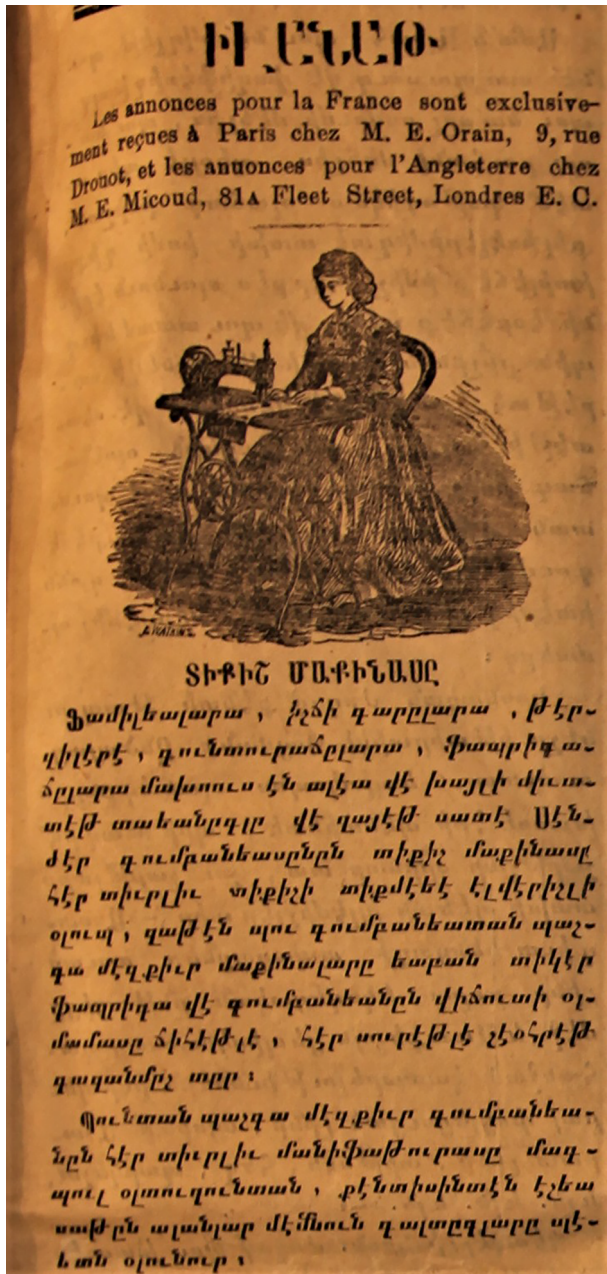 ԻԼԱՆԱԹ
Les annonces pour la France sont exclusive-
ment reçues à Paris chez M. E. Orain, 9, rue
Drouot, et les annonces pour l'Angleterre chez
M. E. Micoud, 81A Fleet Street, Londres E. C.
ՏԻՔԻՇ ՄԱՔԻՆԱՍԸ
Ֆամիլեալարա, իշճի գարըլարա, թէր-
զիլէրէ, գունտուրաճըլարա, ֆապրիգա-
ճըլարա մախսուս էն ալէա վէ խայլի միւտ-
տէթ տաեանըգլը վէ ղայէթ սատէ Սէն-
ժէր գումբանեասընըն տիքիշ մաքինասը
հէր տիւրլիւ տիքիշի տիքմէեէ էլվէրիշլի
օլուպ, զաթէն պու գումբանեատան պաշ-
գա մէզքիւր մաքինալարը եաբան տիկէր
ֆապրիգա վէ գումբանեանըն վիճուտի օլ-
մամասը ճիհէթլէ, հէր սուրէթլէ շէօհրէթ
գազանմըշ տըր։
Պունտան պաշգա մէզքիւր գումբանեա-
նըն հէր տիւրլիւ մանիֆաթուրասը մագ-
պուլ օլտուղունտան, քէնտիսինտէն էշեա
սաթըն ալանլար մէմնուն գալտըգլարը պէ-
եան օլունուր։